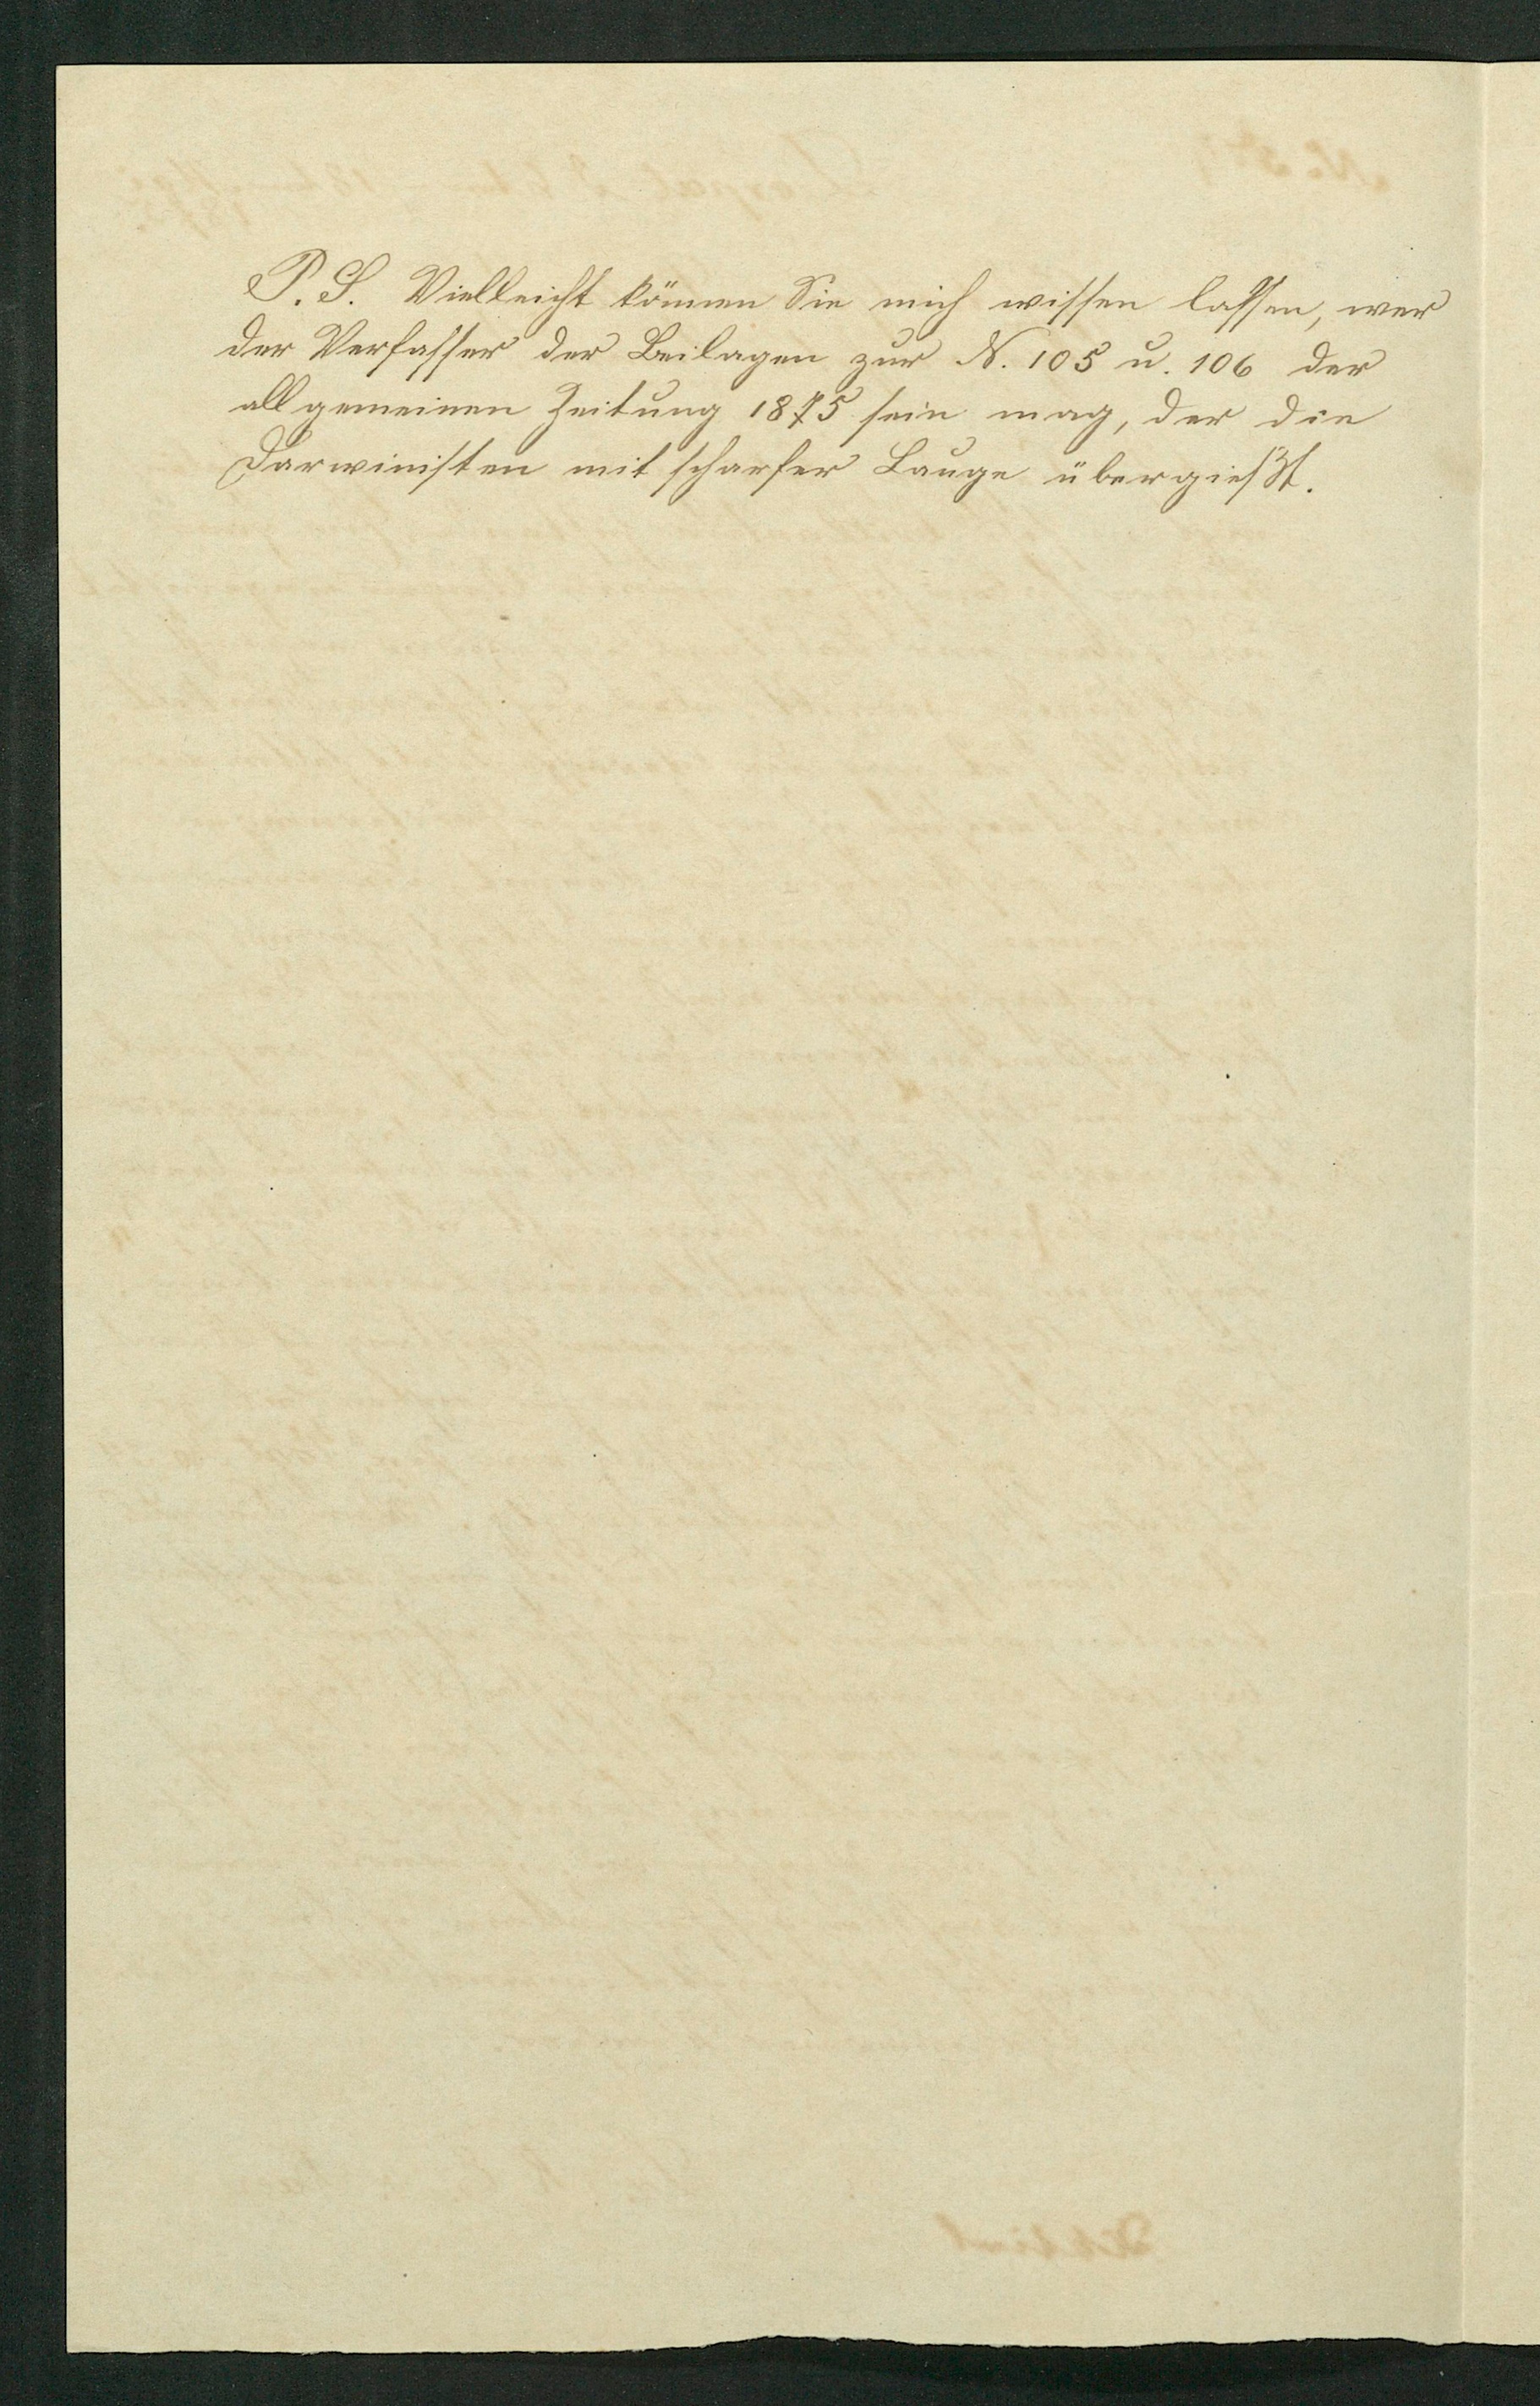 P. S. Vielleicht können Sie mich wissen lassen, wer
der Verfasser der Beilagen zur N. 105 u. 106 der
allgemeinen Zeitung 1875 sein mag, der die
Darwinisten mit scharfer Lauge übergießt.